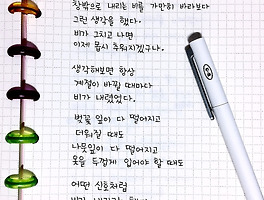 창밖으로 내리는 비를 가만히 바라보다
그런 생각을 했다.
비가 그치고 나면
이제 몹시 추워지겠구나.
생각해보면 항상
계절이 바뀔 때마다
비가 내렸었다.
벚꽃 잎이 다 떨어지고
더워질 때도
나뭇잎이 다 떨어지고
옷을 두껍게 입어야 할 때도
어떤 신호처럼
비가